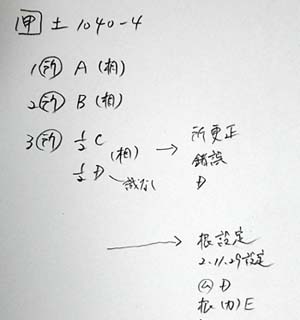 甲 土 1040-4
1 所 A (相)
2 所 B (相)
3 所 1/2 C (相) → 所更正
1/2 D 識なし 錯誤
D
→ 根設定
2.11.29設定
㋱ D
根(力) E